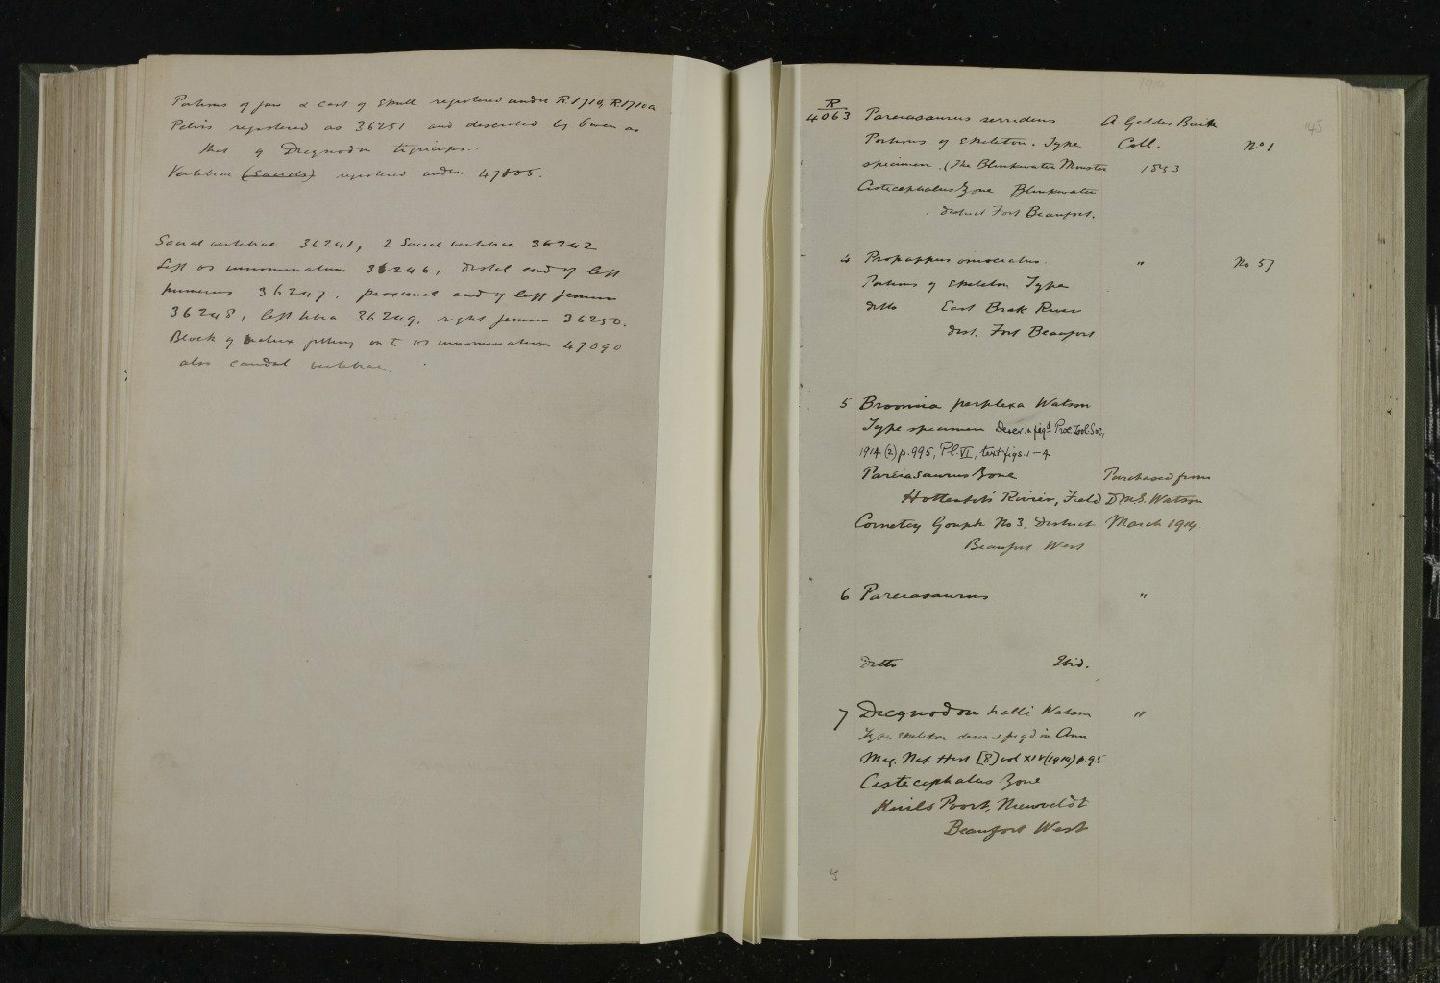 Portions of jaw & cast of skull registered under R.1710, R1710a
Pelvis registered as 36251 and described by Owen as
that of Dicynodon tigriceps.
Vertebrae (Sacrals) registered under 47805.
Sacral vertebrae 36241, 2 Sacral vertebrae 36242
Left os innominatum 36246, distal end of left
humerus 36247, proximal end of left femur
36248, left tibia 36249, right femur 36250.
Block of matrix fitting on to os innominatum 47090
also caudal vertebrae.
1914
145
R
4063 Pareiasaurus serridens A Geddes Bain
Portions of skeleton. Type Coll. No 1
specimen. (The Blinkwater Monster 1853
Cistecephalus Zone Blinkwater
District Fort Beaufort.
4 Propappus omocratus. " No 53
Portions of skeleton Type
ditto East Brak River
Dist. Fort Beaufort
5 Broomia perplexa Watson
Type specimen Descr. & fig.d Proc. Zool. Soc.,
1914 (2) p. 995, Pl. VI, text figs. 1-4
Pareiasaurus Zone Purchased from
Hottentots Rivier, Field D.M.S. Watson
Cornetcy Gouph No 3. District March 1914.
Beaufort West
6 Pareiasaurus "
Ditto Ibid.
7 Dicynodon halli Watson "
Type skeleton descr. & fig'd in Ann
Mag. Nat Hist [8] vol XIV (1914) p. 95
Cistecephalus Zone
Kuils Poort, Nieuweveldt
Beaufort West